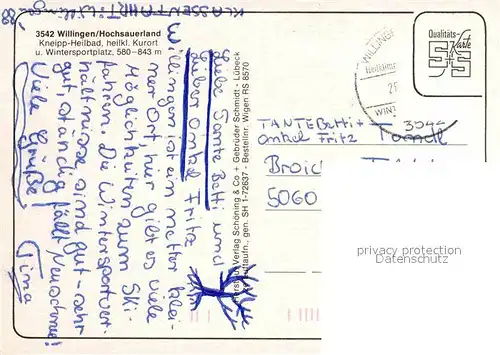 KLASSENFAHRT: Willingen 88
3542 Willingen/Hochsauerland
Kneipp-Heilbad, heilkl. Kurort
u. Wintersportplatz, 580-843 m
Liebe Tante Betti und
lieber Onkel Fritz
Willingen ist ein netter klei-
ner Ort, hier gibt es viele
Möglichkeiten zum Ski-
fahren. Die Wintersportver-
hältnisse sind gut - sehr
gut, ständig fällt Neuschnee!
Viele Grüße! Tina
Verlag Schöning & Co + Gebrüder Schmidt - Lübeck
gen. SH 1-72637 - Bestellnr. Wigen RS 8570
Qualitäts-
Karte
WILLINGEN
WINT
3542
TANTE Betti +
onkel Fritz
Broic
5060
privacy protection
Datenschutz